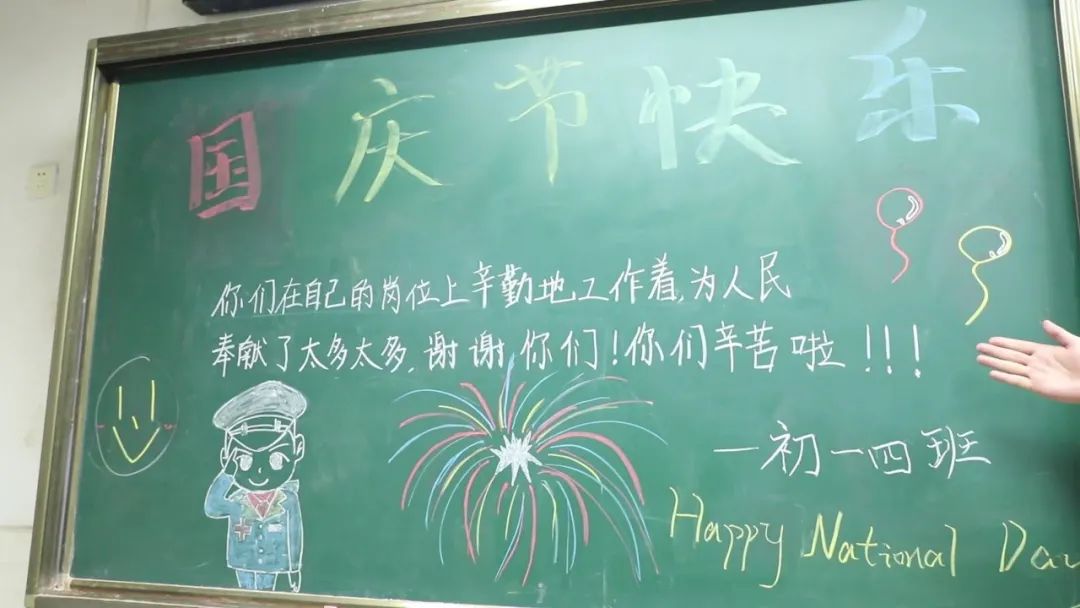 国庆节快乐
你们在自己的岗位上辛勤地工作着,为人民
奉献了太多太多,谢谢你们!你们辛苦啦!!!
—初一四班
Happy National Day